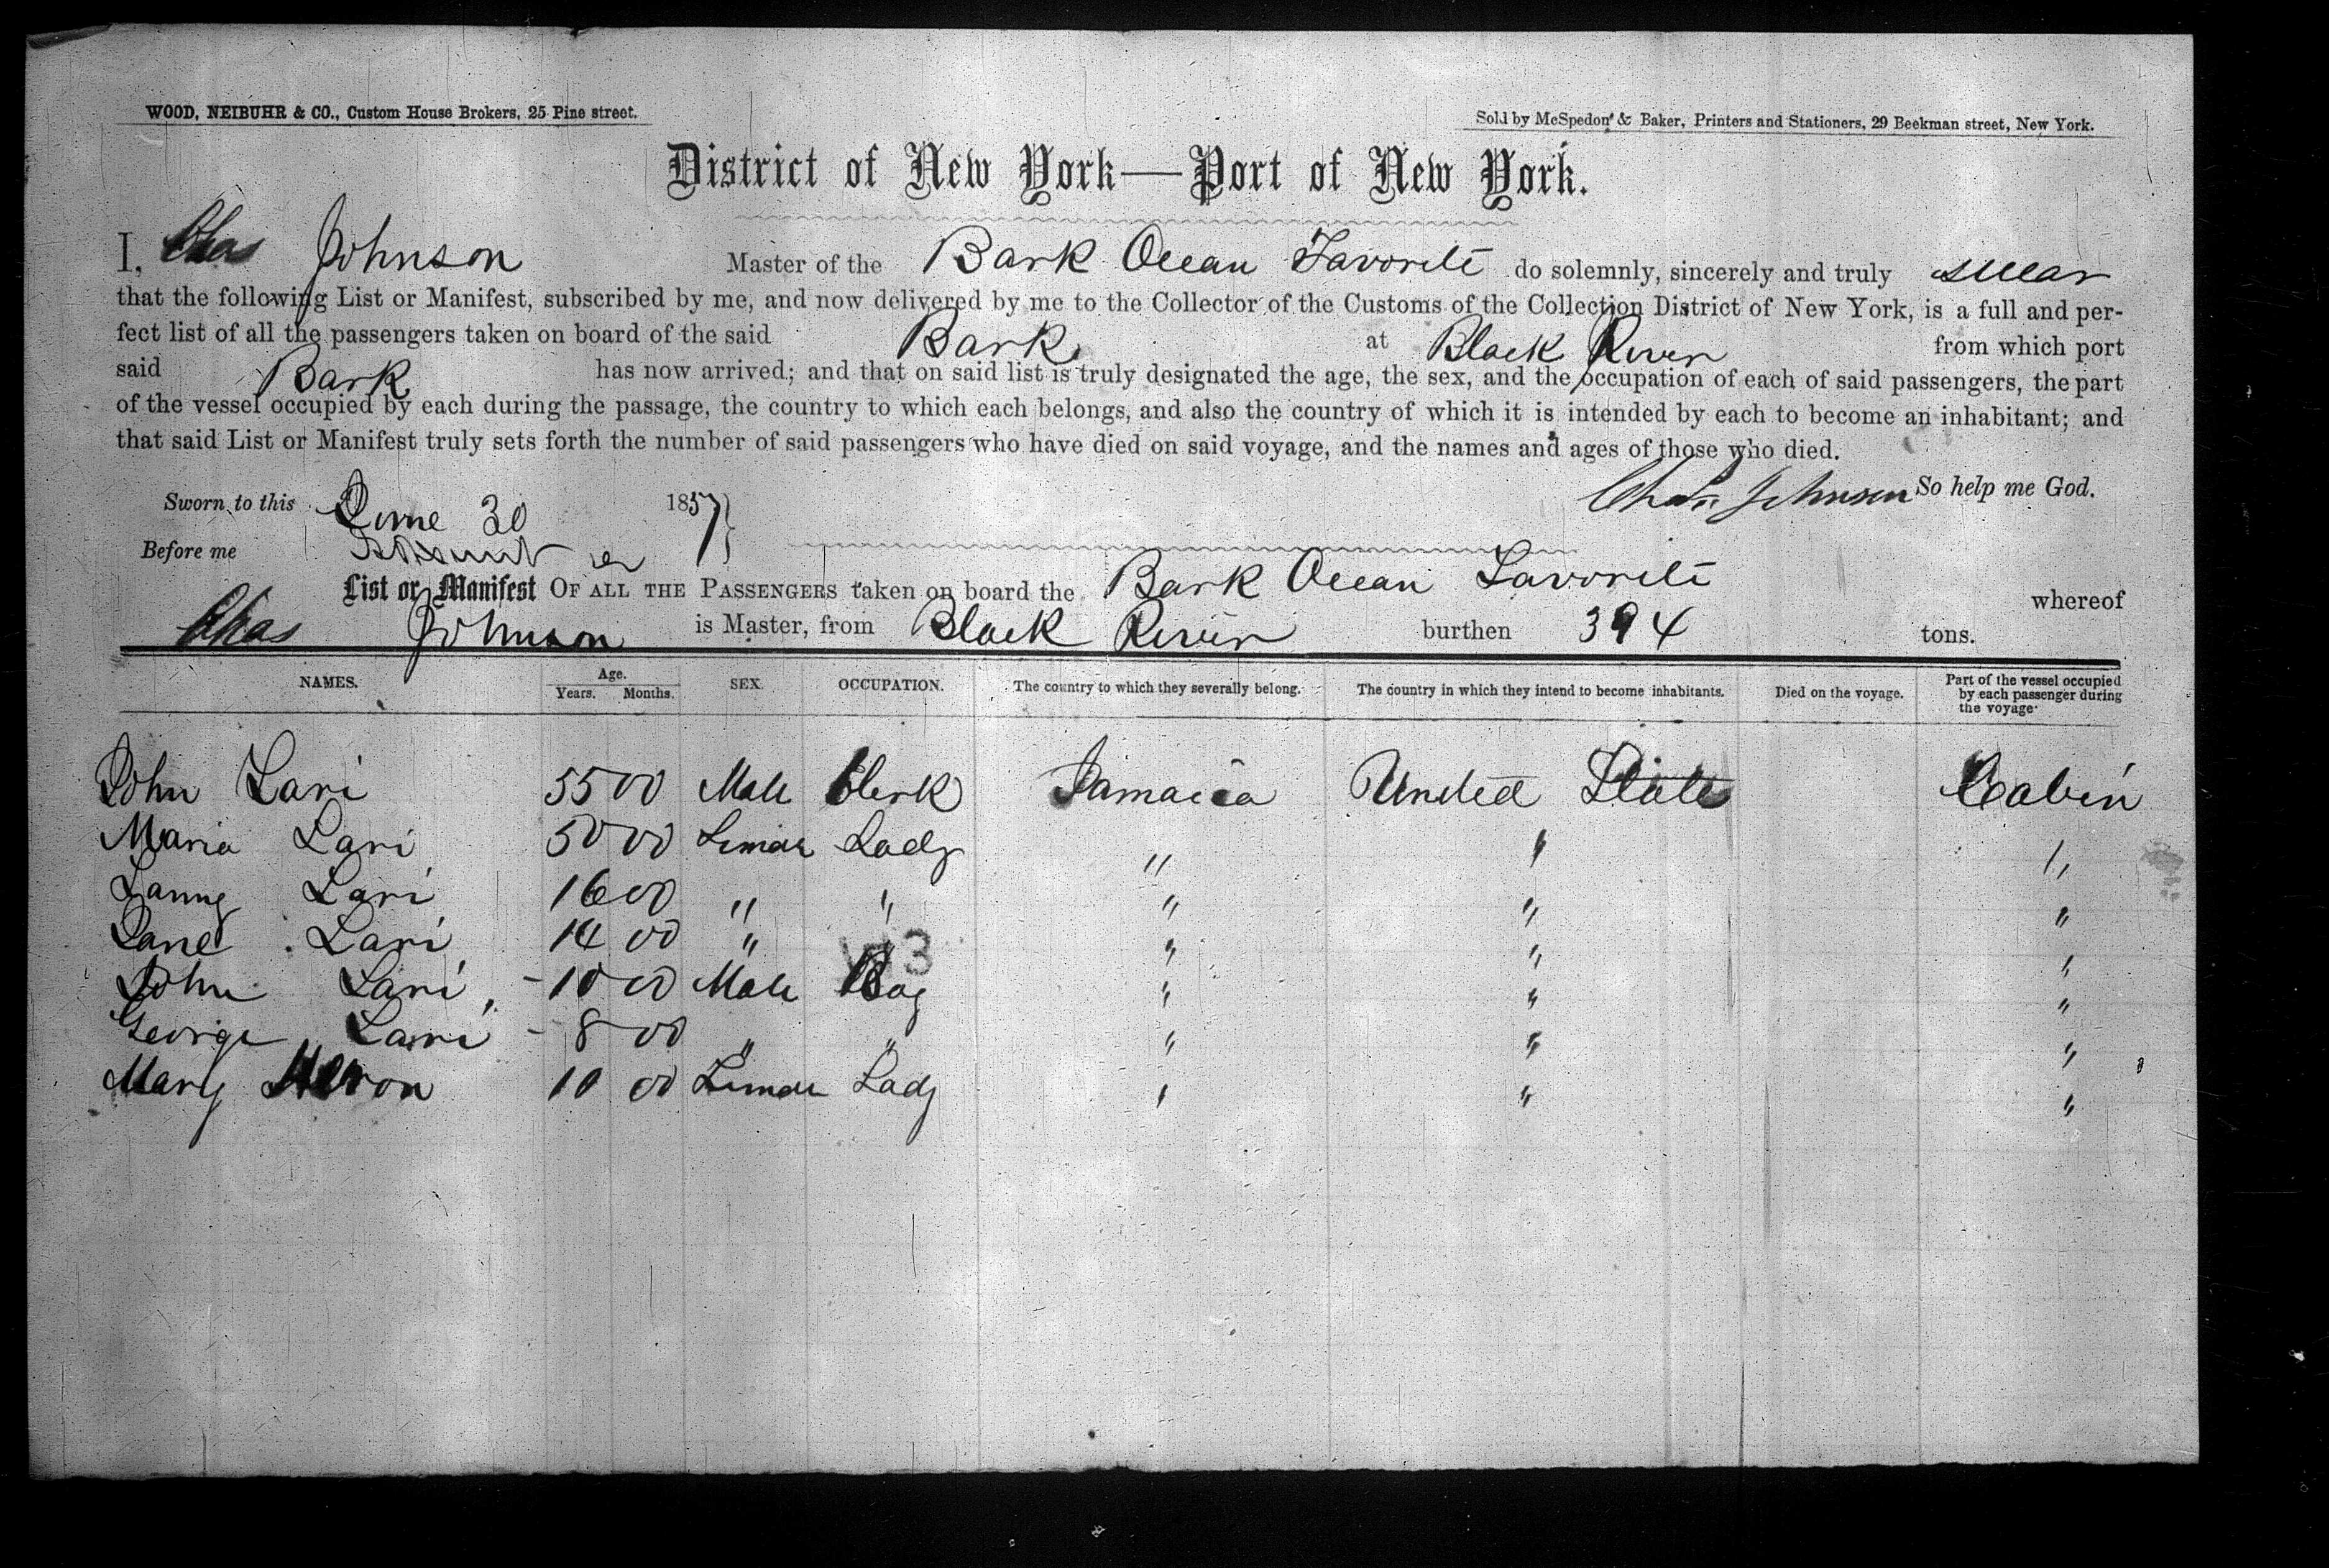 WOOD, NEIBUHR & CO., Custom House Brokers, 25 Pine street.
Sold by McSpedon & Baker, Printers and Stationers, 29 Beekman street, New York.
District of New York—Port of New York.
I, Chas Johnson Master of the Bark Ocean Favorite do solemnly, sincerely and truly swear
that the following List or Manifest, subscribed by me, and now delivered by me to the Collector of the Customs of the Collection District of New York, is a full and per-
fect list of all the passengers taken on board of the said Bark at Black River from which port
said Bark has now arrived; and that on said list is truly designated the age, the sex, and the occupation of each of said passengers, the part
of the vessel occupied by each during the passage, the country to which each belongs, and also the country of which it is intended by each to become an inhabitant; and
that said List or Manifest truly sets forth the number of said passengers who have died on said voyage, and the names and ages of those who died.
Chas Johnson So help me God.
Sworn to this June 30 1857
Before me
List or Manifest OF ALL THE PASSENGERS taken on board the Bark Ocean Favorite whereof
Chas Johnson is Master, from Black River burthen 394 tons.
NAMES. Age. Years. Months. SEX. OCCUPATION. The country to which they severally belong. The country in which they intend to become inhabitants. Died on the voyage. Part of the vessel occupied by each passenger during the voyage.
John Lari 55 00 Male Clerk Jamaica United State Cabin
Maria Lari 50 00 Female Lady " " "
Fanny Lari 16 00 " " " " "
Jane Lari 14 00 " " " " "
John Lari 10 00 Male Boy " " "
George Lari 8 00 " " " " "
Mary Heron 10 00 Female Lady " " "